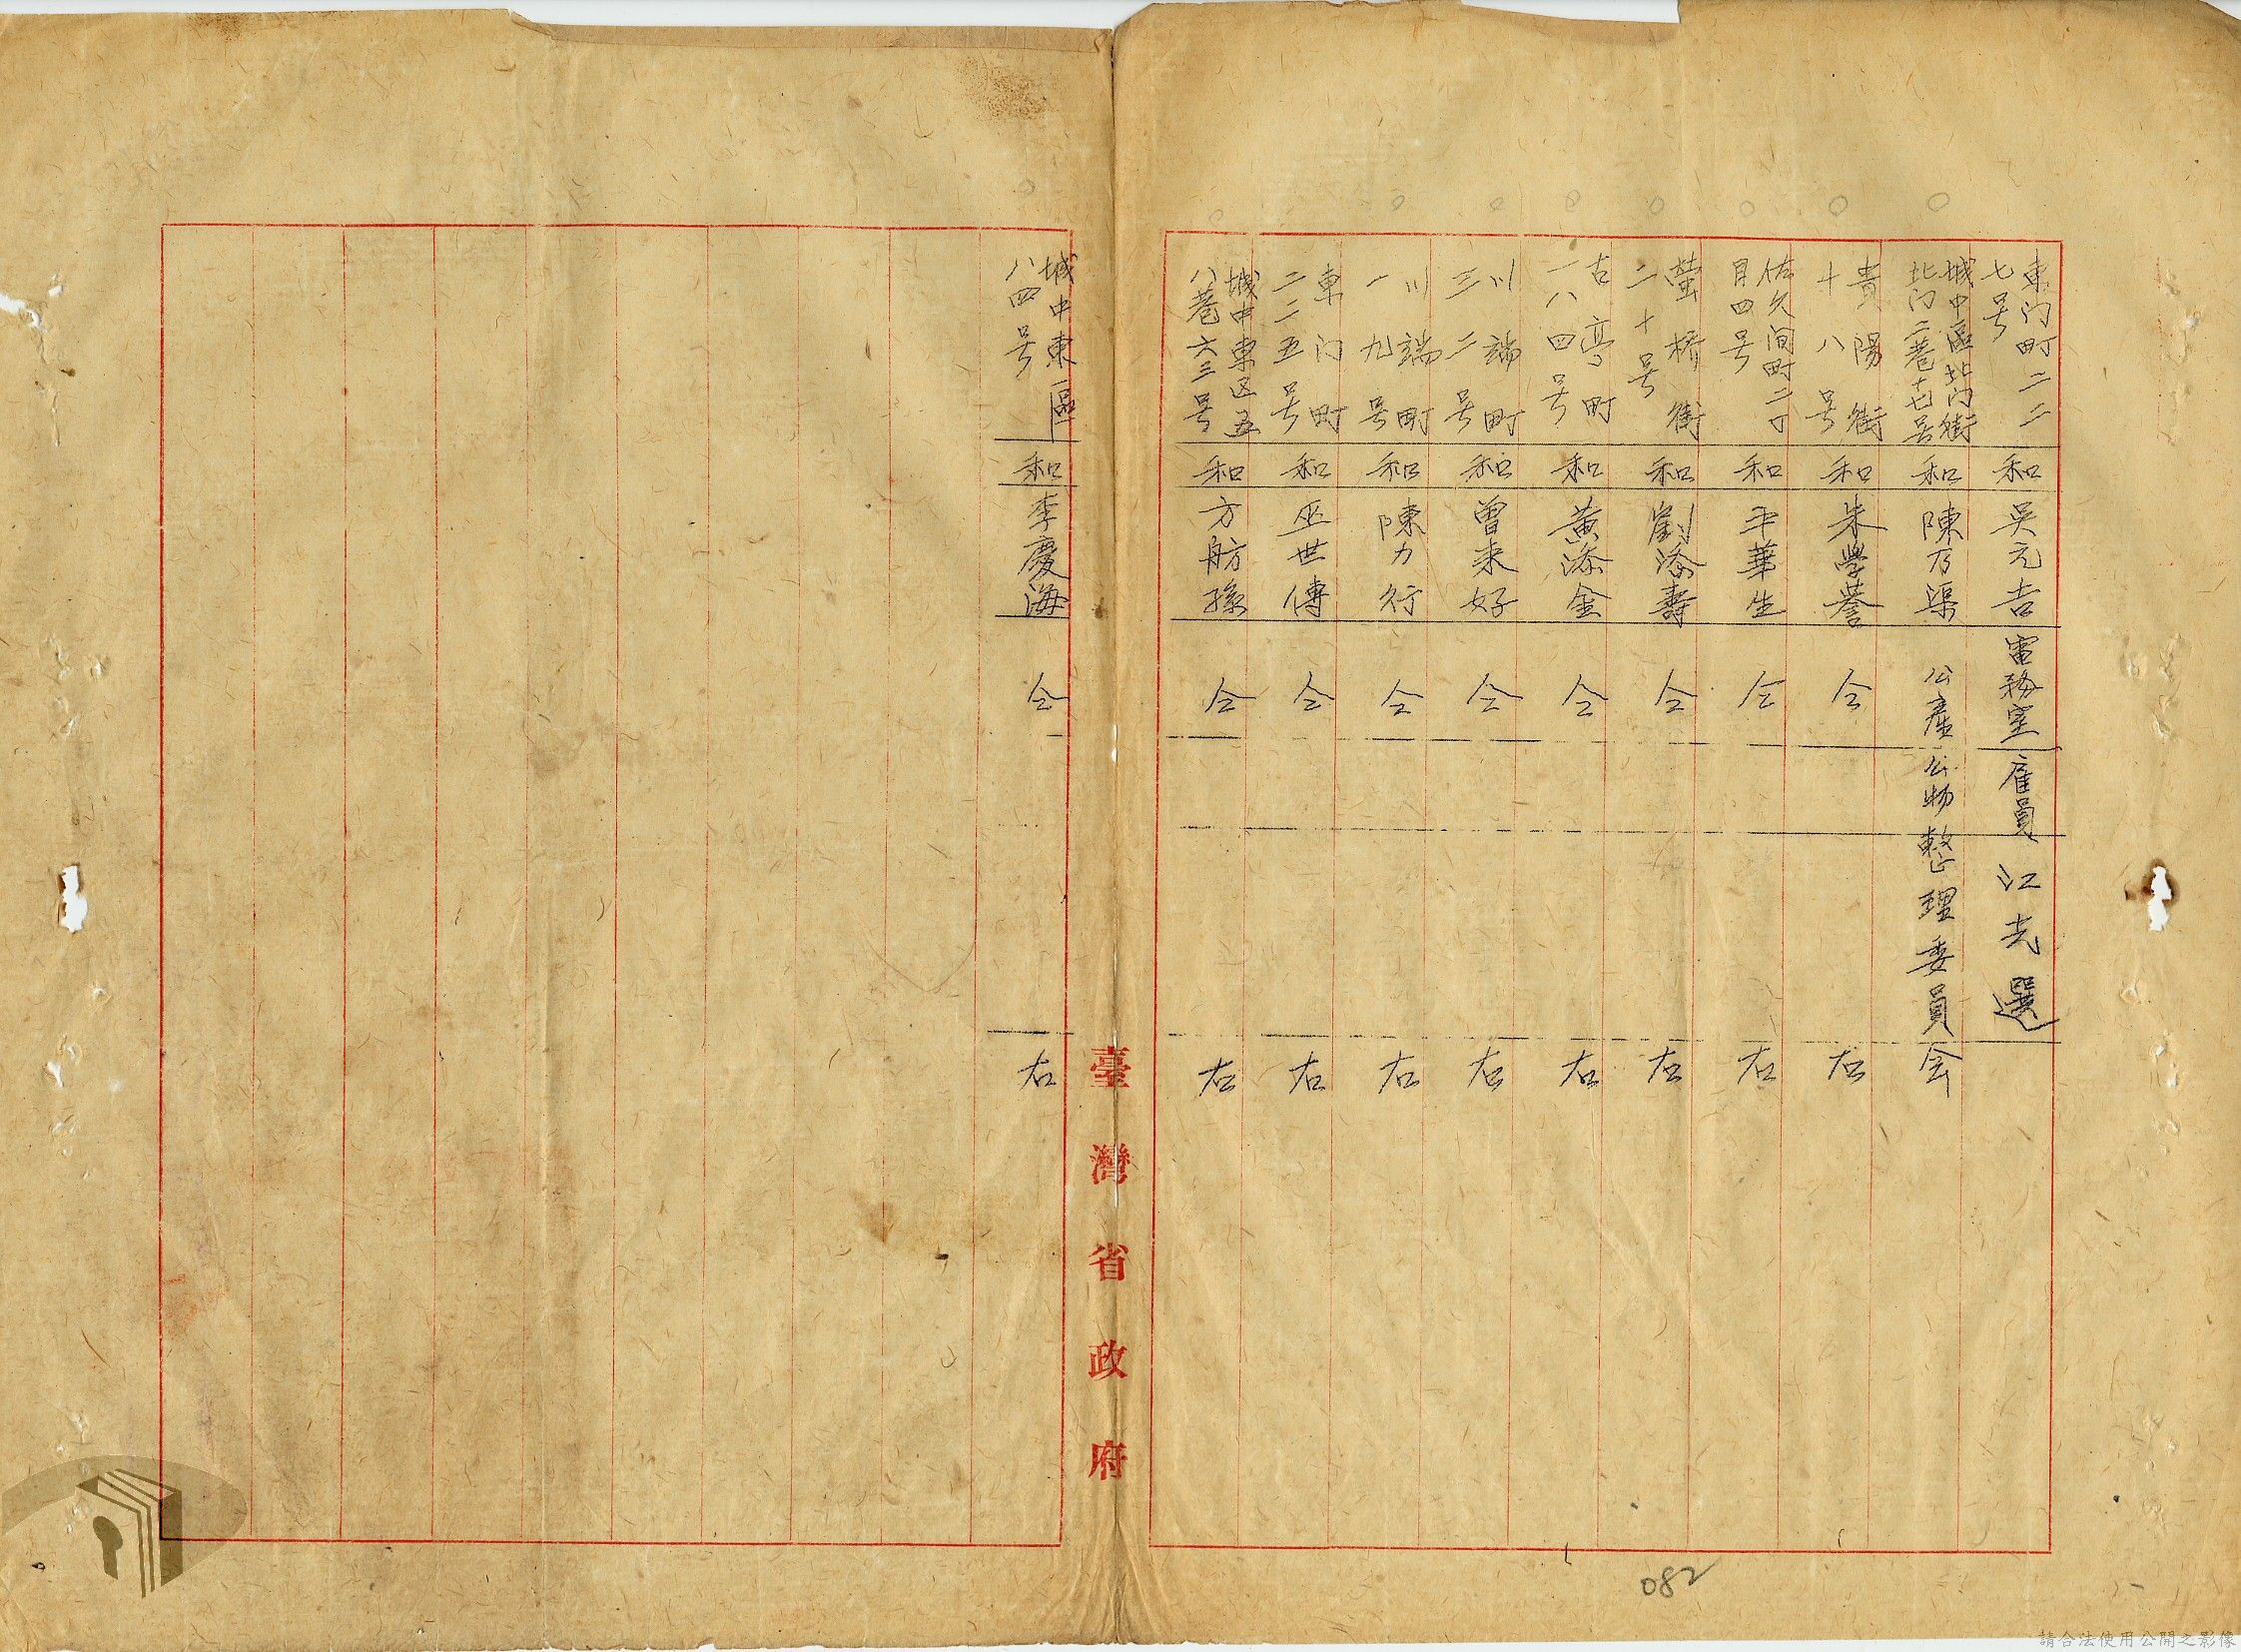 東门町二二七号 和 吳元吉 電務室 雇員 江先選
城中區北门街北门二巷七七号 和 陳乃渠 公產公物整理委員会
貴陽街十八号 和 朱學誉 仝 右
佐久间町二丁目四号 和 平華生 仝 右
螢桥街二十号 和 劉添壽 仝 右
古亭町一八四号 和 黃添金 仝 右
川端町三二号 和 曾来好 仝 右
川端町一九号 和 陳力行 仝 右
東门町二二五号 和 巫世傳 仝 右
城中東区五八巷六三号 和 方舫孫 仝 右
臺灣省政府
城中東區八四号 和 李慶海 仝 右
082
請合法使用公開之影像